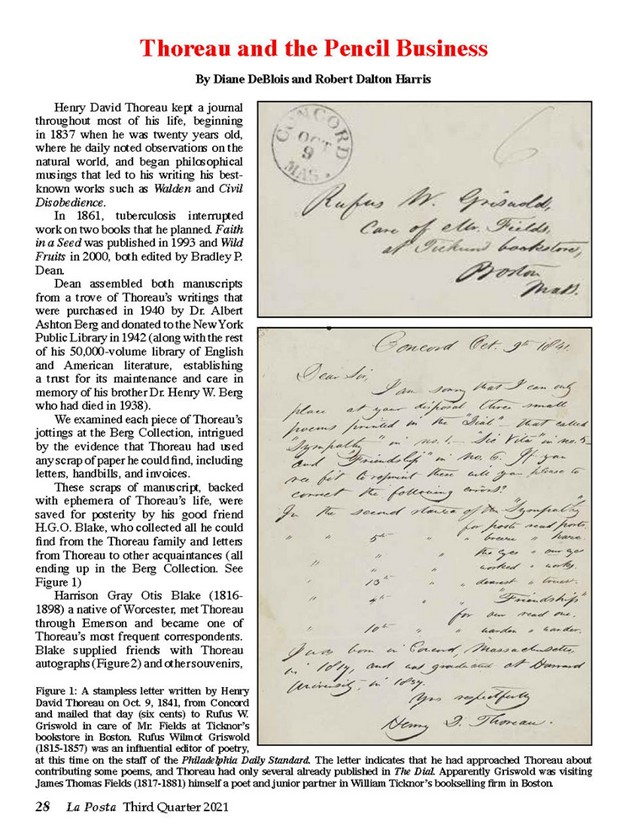 Thoreau and the Pencil Business
By Diane DeBlois and Robert Dalton Harris
Henry David Thoreau kept a journal
throughout most of his life, beginning
in 1837 when he was twenty years old,
where he daily noted observations on the
natural world, and began philosophical
musings that led to his writing his best-
known works such as Walden and Civil
Disobedience.
In 1861, tuberculosis interrupted
work on two books that he planned. Faith
in a Seed was published in 1993 and Wild
Fruits in 2000, both edited by Bradley P.
Dean.
Dean assembled both manuscripts
from a trove of Thoreau's writings that
were purchased in 1940 by Dr. Albert
Ashton Berg and donated to the New York
Public Library in 1942 (along with the rest
of his 50,000-volume library of English
and American literature, establishing
a trust for its maintenance and care in
memory of his brother Dr. Henry W. Berg
who had died in 1938).
We examined each piece of Thoreau's
jottings at the Berg Collection, intrigued
by the evidence that Thoreau had used
any scrap of paper he could find, including
letters, handbills, and invoices.
These scraps of manuscript, backed
with ephemera of Thoreau's life, were
saved for posterity by his good friend
H.G.O. Blake, who collected all he could
find from the Thoreau family and letters
from Thoreau to other acquaintances (all
ending up in the Berg Collection. See
Figure 1)
Harrison Gray Otis Blake (1816-
1898) a native of Worcester, met Thoreau
through Emerson and became one of
Thoreau's most frequent correspondents.
Blake supplied friends with Thoreau
autographs (Figure 2) and other souvenirs,
CONCORD
OCT
9
MAS.
6
Rufus W. Griswold,
Care of Mr. Fields,
at Ticknor's bookstore,
Boston
Mass.
Concord Oct. 9th 1841.
Dear Sir,
I am sorry that I can only
place at your disposal three small
poems printed in the "Dial - that called
"Sympathy" in no. 1. - Sic Vita" in no. 5-
and "Friendship" in no. 6. If you
see fit to reprint these will you please to
correct the following errors?
In the second stanza of the "Sympathy"
for posts read ports
" " 5th " "
the eyes " our eyes
" worked " works.
" 13th " " dearest "
" 4th " "Friendship"
for our read one.
" 10th " " warden " warder.
I was born in Concord, Massachusetts,
in 1817, and was graduated at Harvard
University, in 1837.
Yrs respectfully
Henry D. Thoreau.
Figure 1: A stampless letter written by Henry
David Thoreau on Oct. 9, 1841, from Concord
and mailed that day (six cents) to Rufus W.
Griswold in care of Mr. Fields at Ticknor's
bookstore in Boston. Rufus Wilmot Griswold
(1815-1857) was an influential editor of poetry,
at this time on the staff of the Philadelphia Daily Standard. The letter indicates that he had approached Thoreau about
contributing some poems, and Thoreau had only several already published in The Dial. Apparently Griswold was visiting
James Thomas Fields (1817-1881) himself a poet and junior partner in William Ticknor's bookselling firm in Boston.
28 La Posta Third Quarter 2021